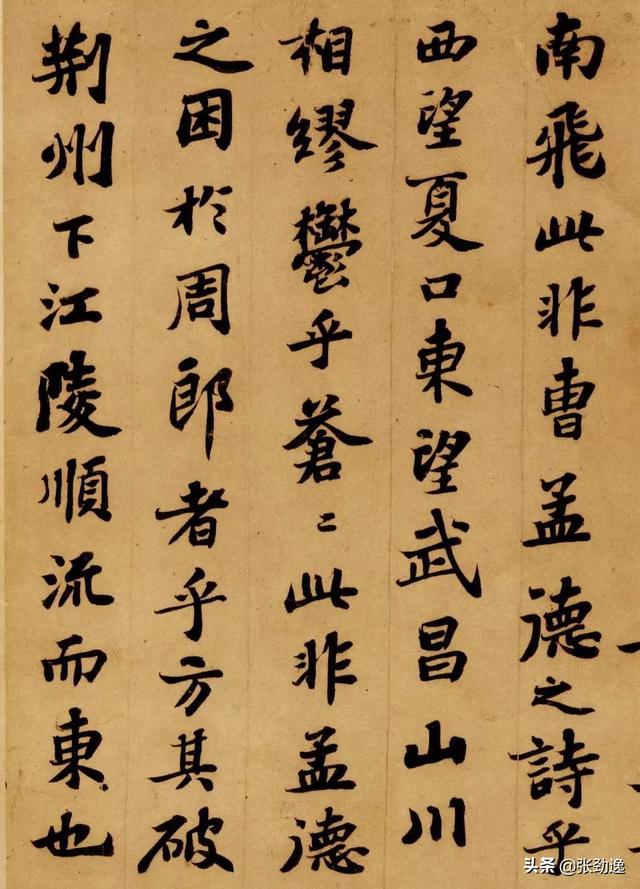 南飛此非曹孟德之詩乎
西望夏口東望武昌山川
相繆鬱乎蒼〻此非孟德
之困於周郎者乎方其破
荆州下江陵順流而東也
头条 @张劲逸